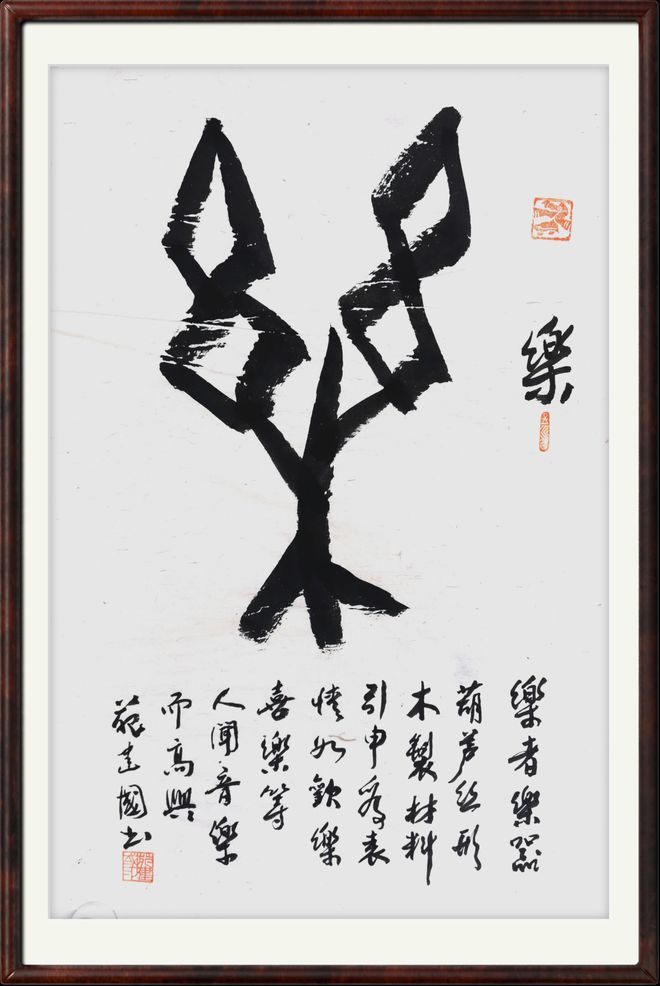 樂
樂
樂者樂器
葫芦丝形
木製材料
引申為表
情如歡樂
喜樂等
人聞音樂
而高興
蘇建國书